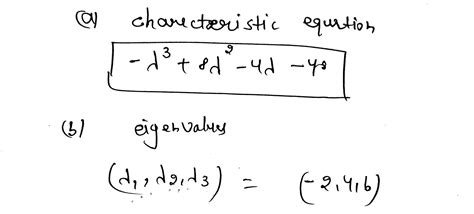 (a) charecteristic equation
-λ³ + 8λ² - 4λ - 48
(b) eigenvalues
(λ₁, λ₂, λ₃) = (-2, 4, 6)